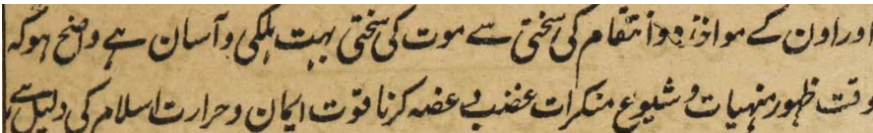 اور اون کے مواخذہ و انتقام کی سختی سے موت کی سختی بہت ہلکی و آسان ہے واضح ہو کہ
وقت ظہور منہیات و شیوع منکرات غضب و غصہ کرنا قوت ایمان و حرارت اسلام کی دلیل ہے